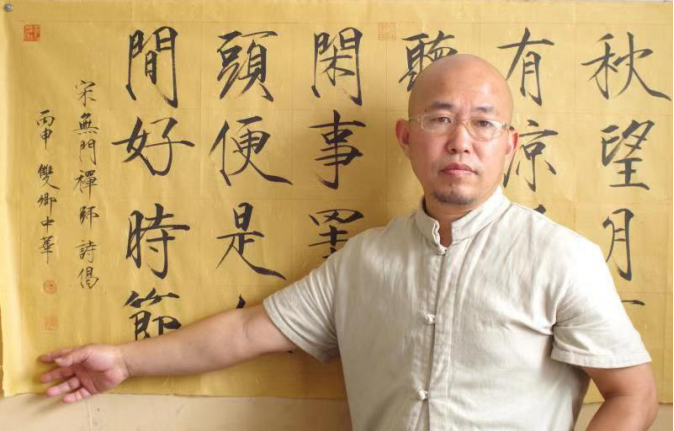 秋望月
有涼
聽
閑事罣
頭便是
間好時節
宋無門禪師詩偈
丙申 雙卿中華